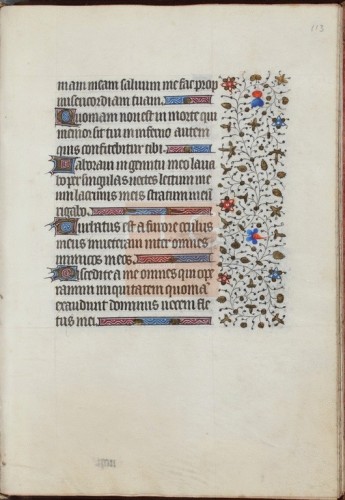 113
mam meam salvum me fac prop
misericordiam tuam.
Quoniam non est in morte qui
memor sit tui in inferno autem
quis confitebitur tibi.
Laboravi in gemitu meo lava
bo per singulas noctes lectum me
um lacrimis meis stratum meum
rigabo.
Turbatus est a furore oculus
meus inveteravi inter omnes
inimicos meos.
Discedite a me omnes qui ope
ramini iniquitatem quoniam
exaudivit dominus vocem fle
tus mei.